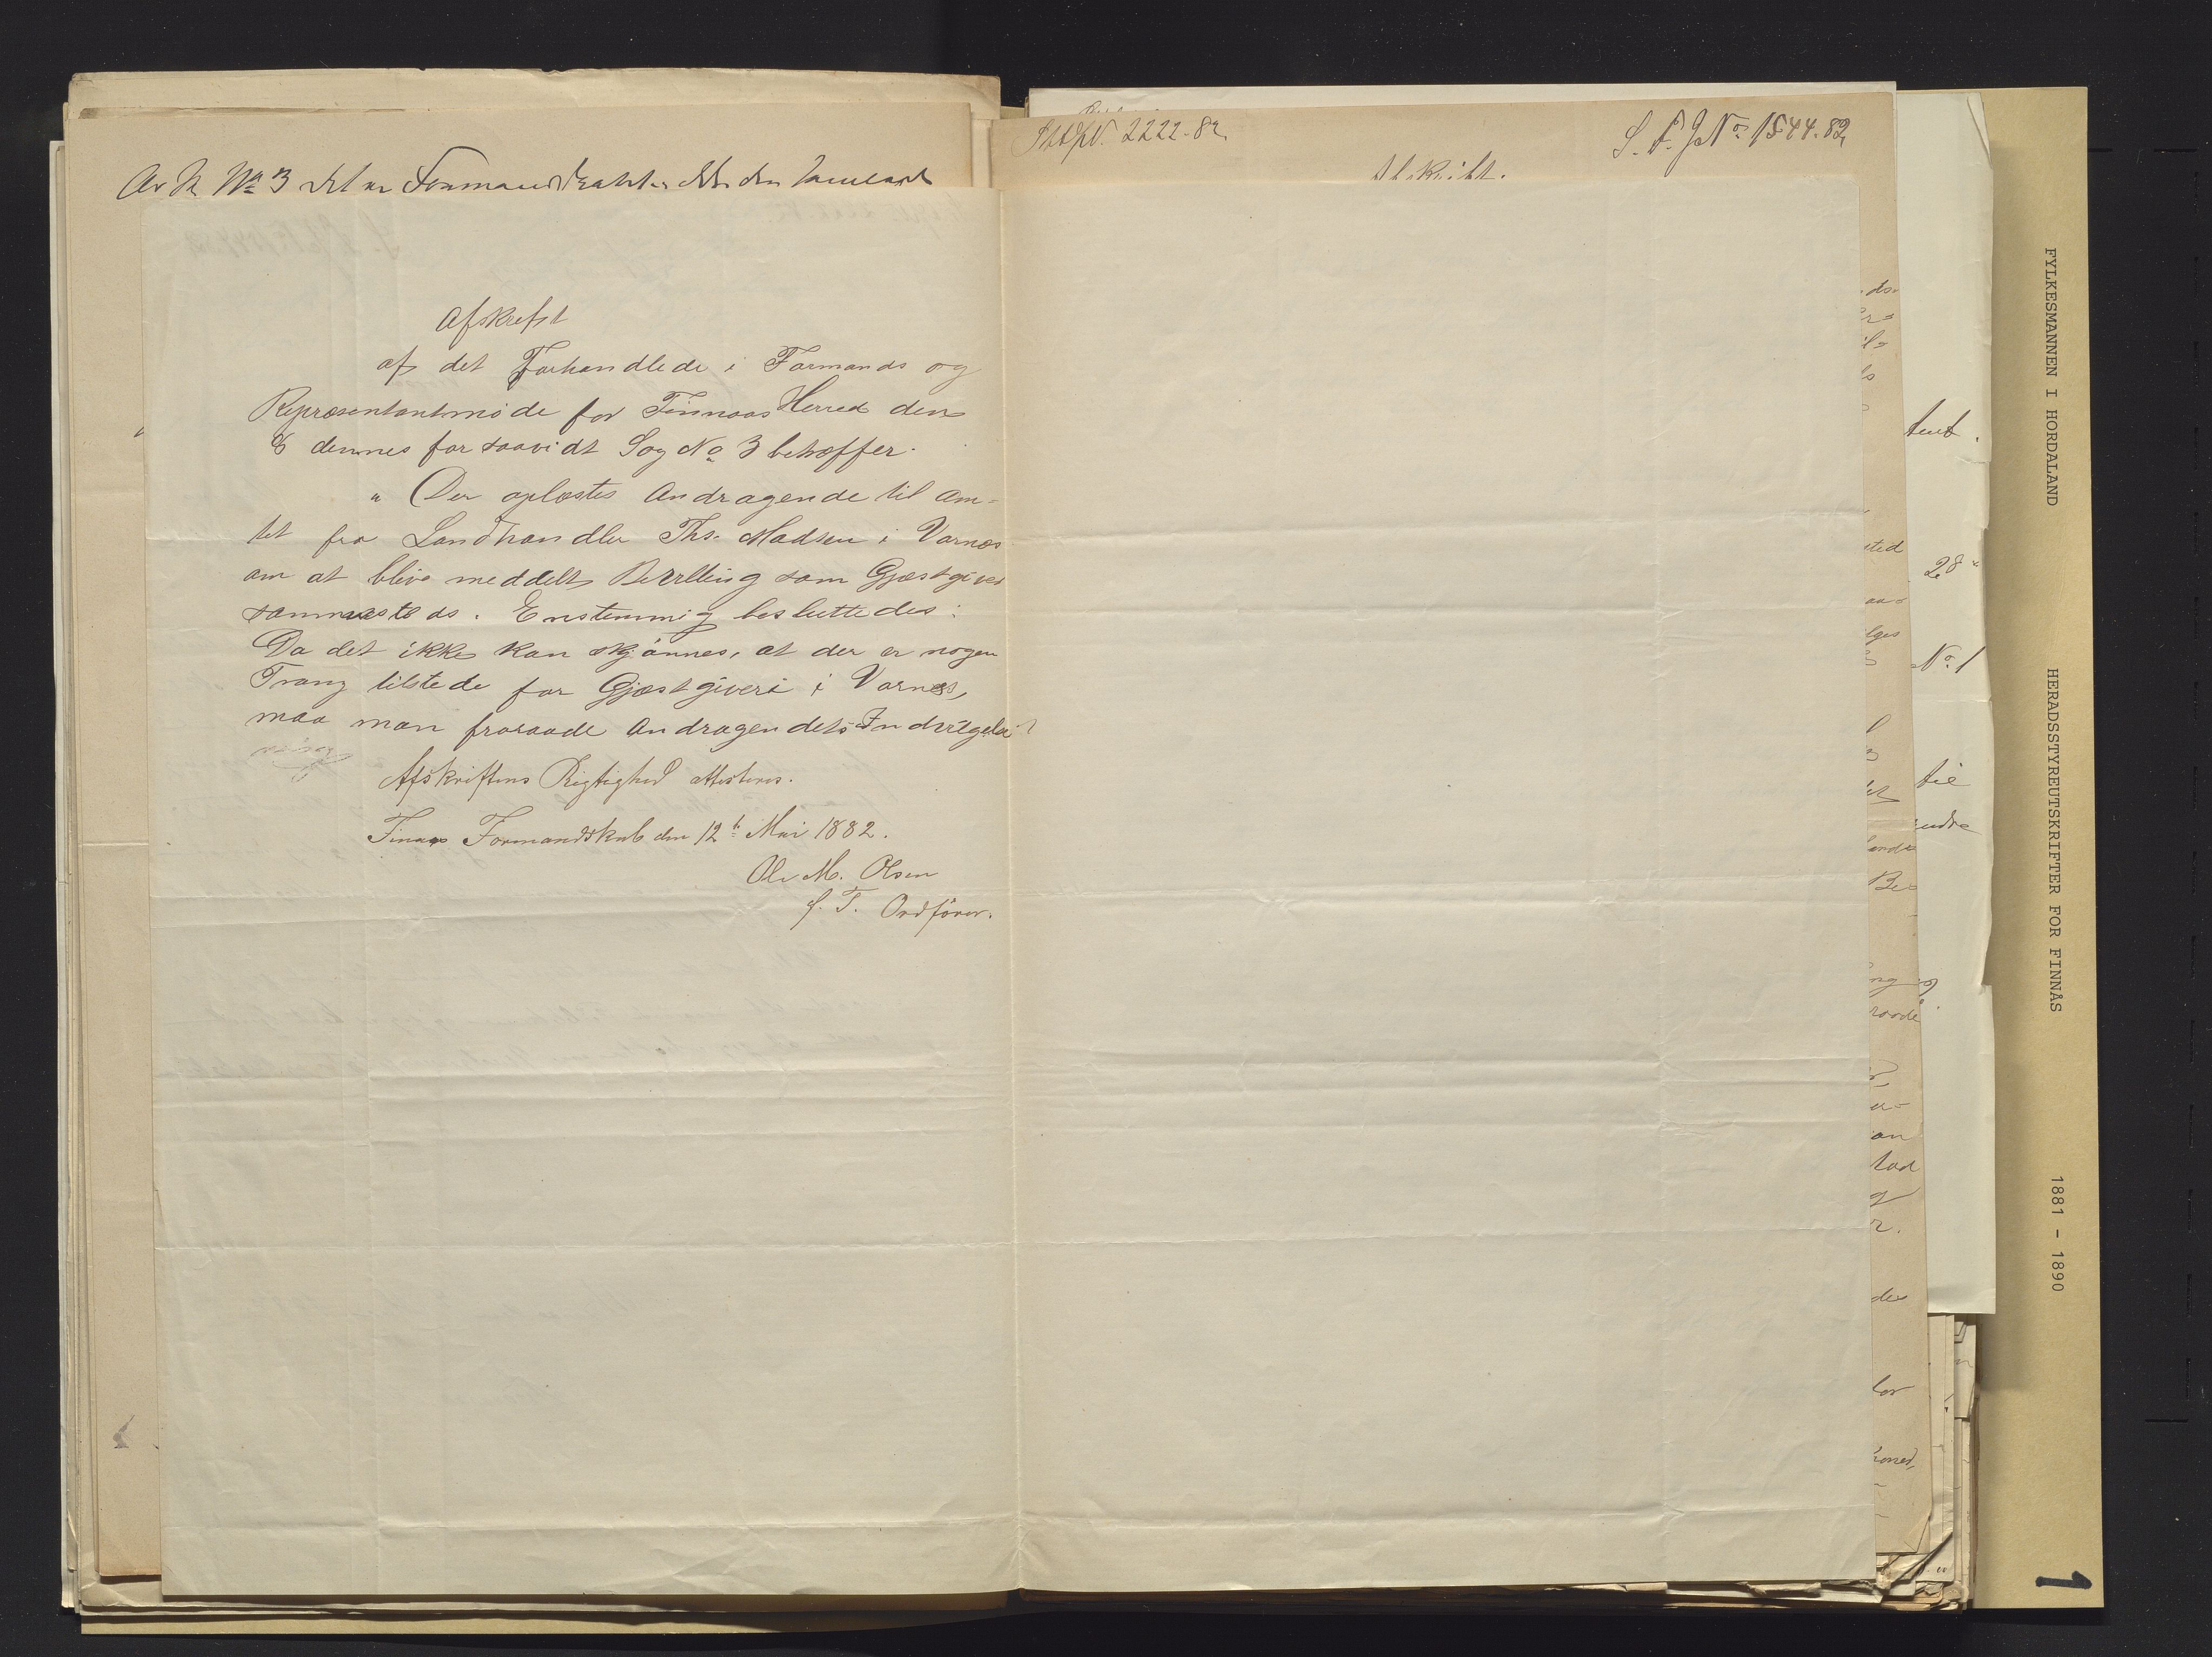 No 3
Sttpl. 2222-82.
S. F. J No 1544.82
Afskrift.
Afskreft
af det Forhandlede i Formands og
Repræsentantmøde for Finnaas Herred den
6 dennes for saavidt Sag No 3 betræffer.
" Der oplæstes Andragende til Am-
tet fra Landhandler Ths. Madsen i Varnæs
om at blive meddelt Bevilling som Gjæstgiver
sammesteds. Enstemmig besluttedes:
Da det ikke kan skjønnes, at der er nogen
Trang tilstede for Gjæstgiveri i Varnæs,
maa man fraraade Andragendets Indvilgelse
Afskriftens Rigtighed attesteres.
Finaas Formandskab den 12te Mai 1882.
Ole M. Olsen
f. T. Ordfører.
tent.
28
No 1
til
andre
FYLKESMANNEN I HORDALAND
HERADSSTYREUTSKRIFTER FOR FINNÅS
1881 - 1890
1